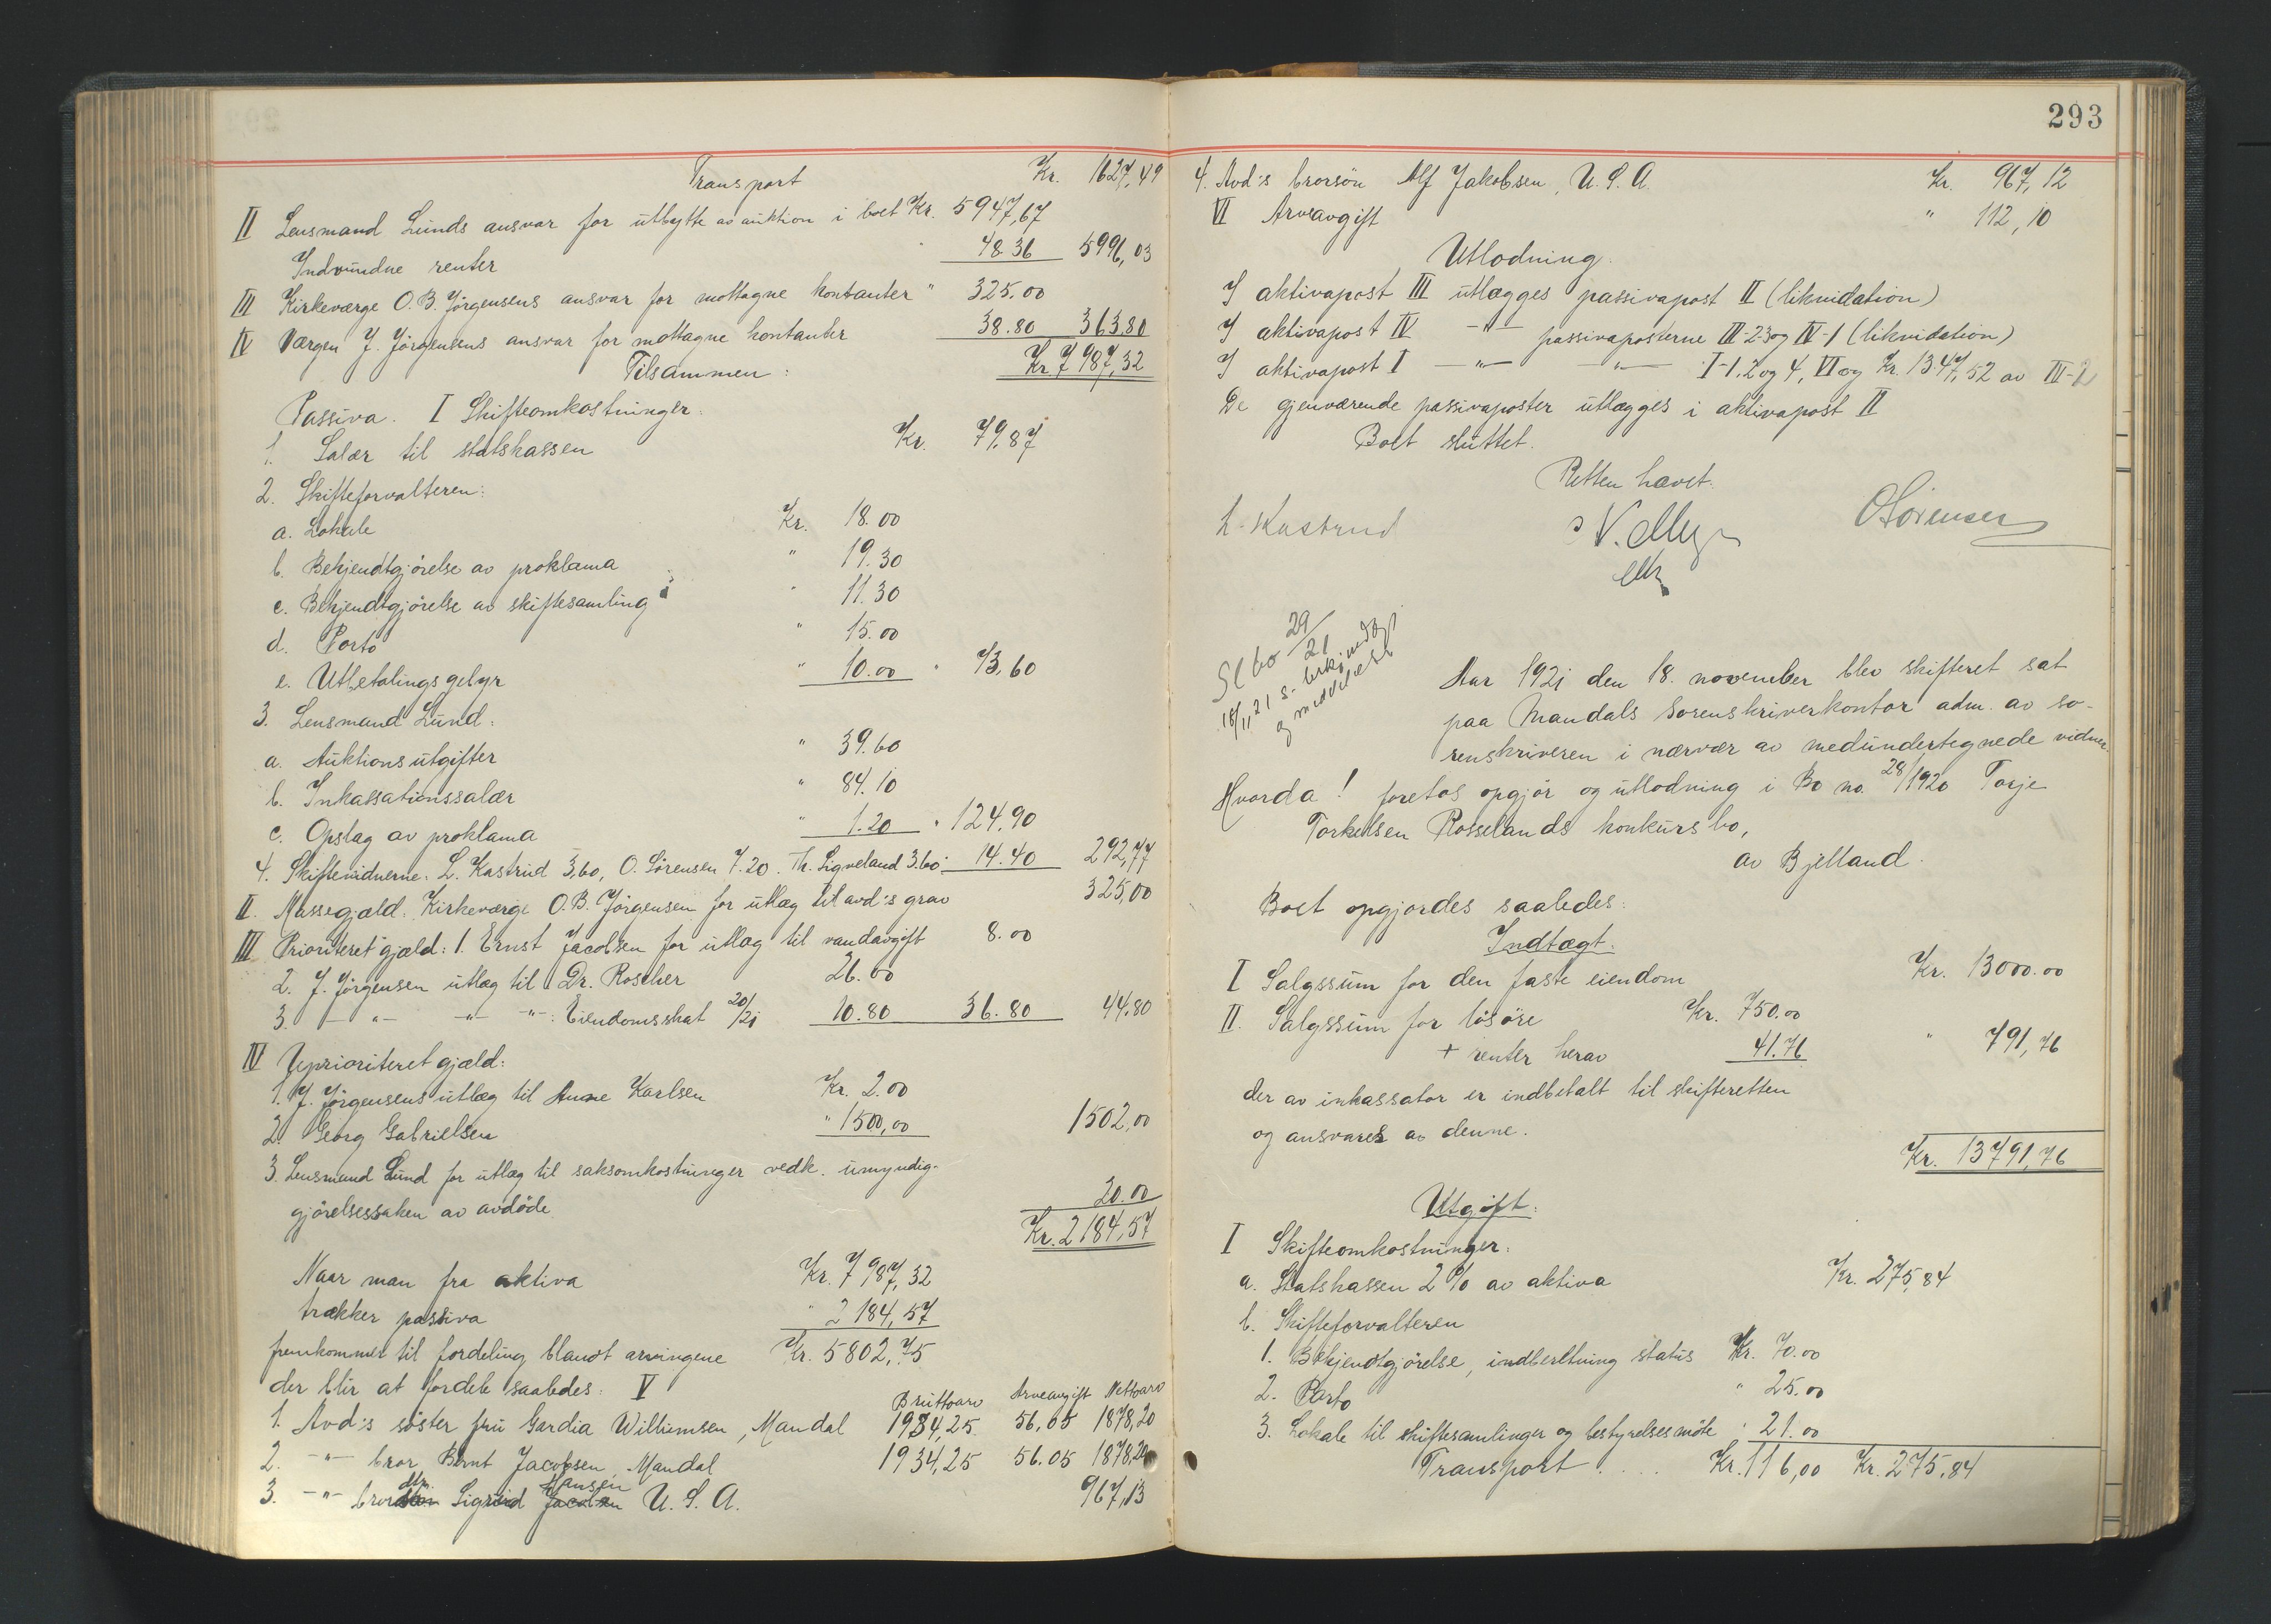 Transport Kr. 1627,49
II Lensmand Lunds ansvar for utbytte av auktion i boet Kr. 5947,67
Indvundne renter " 48.36 5996,03
III Kirkeværge O. B. Jörgensens ansvar for mottagne kontanter " 325.00
IV Værgen J. Jörgensens ansvar for mottagne kontanter 38.80 363,80
Tilsammen: Kr 7987,32
Passiva. I Skifteomkostninger:
1. Salær til statskassen Kr. 79,87
2. Skifteforvalteren:
a. Lokale Kr. 18.00
b. Bekjendtgjörelse av proklama " 19.30
c. Bekjendtgjörelse av skiftesamling " 11.30
d. Porto " 15.00
e. Utbetalingsgebyr " 10.00 " 73,60
3. Lensmand Lund:
a. Auktionsutgifter " 39.60
b. Inkassationssalær " 84.10
c. Opslag av proklama " 1.20 " 124,90
4. Skiftevidnerne: L. Kastrud 3,60, O. Sörensen 7.20. Th. Sigveland 3.60: 14.40 292,77
II. Massegjæld. Kirkeværge O. B. Jörgensen for utlæg til avd:s grav 325,00
III Prioriteret gjæld: 1. Ernst Jacobsen for utlæg til vandavgift 8.00
2. J. Jörgensen utlæg til Dr. Roscher 26.00
3. -"- -"- -"-: Eiendomsskat 20/21 10.80 36.80 44.80
IV Uprioriteret gjæld:
1. J. Jörgensens utlæg til Anne Karlsen Kr. 2.00
2. Georg Gabrielsen " 1500,00 1502,00
3. Lensmand Lund for utlæg til saksomkostninger vedk. umyndig-
gjörelsessaken av avdöde 20.00
Kr. 2184,57
Naar man fra aktiva Kr. 7987,32
trækker passiva " 2184,57
fremkommer til fordeling blandt arvingene Kr. 5802,75
der blir at fordele saaledes: V Bruttoarv Arveavgift Nettoarv
1. Avd:s söster fru Gardia Williumsen, Mandal 1934,25 56,05 1878,20
2. -"- bror Bernt Jacobsen, Mandal 1934,25 56.05 1878,20
3. -"- brordtr. Sigrid Hansen U. S. A. 967,13
293
4. Avd:s brorsön Alf Jakobsen, U. S. A. Kr. 967,12
VI Arveavgift " 112,10
Utlodning.
I aktivapost III utlægges passivapost II (likvidation)
I aktivapost IV -"- passivaposterne III-2-3 og IV-1 (likvidation)
I aktivapost I -"- -"- I-1, 2 og 4, VI og Kr. 1347,52 av IV-2
De gjenværende passivaposter utlægges i aktivapost II
Boet sluttet.
Retten hævet.
L. Kastrud O Sörensen
29/21
18/11 21 s. bekjendtgj
og meddelelse
Aar 1921 den 18. november blev skifteret sat
paa Mandals sorenskriverkontor adm. av so-
renskriveren i nærvær av medundertegnede vidner
Hvorda! foretos opgjör og utlodning i Bo no. 28/1920 Torje
Torkelsen Rosselands konkursbo,
av Bjelland.
Boet opgjordes saaledes:
Indtægt.
I Salgssum for den faste eiendom Kr. 13000.00
II. Salgssum for lösöre Kr. 750.00
+ renter herav 41.76 " 791,76
der av inkassator er indbetalt til skifteretten
og ansvares av denne.
Kr. 13791,76
Utgift:
I Skifteomkostninger:
a. Statskassen 2 % av aktiva Kr. 275,84
b. Skifteforvalteren
1. Bekjendtgjörelse, indberetning status Kr. 70.00
2. Porto " 25.00
3. Lokale til skiftesamlinger og bestyrelsesmöte " 21.00
Transport .... Kr. 116,00 Kr. 275,84